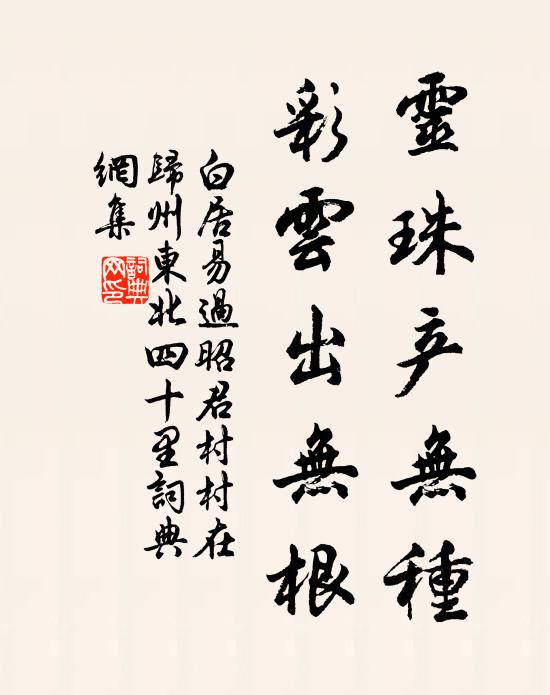 靈珠产無種
彩雲出無根
白居易過昭君村村在
歸州東北四十里詞典
網集
詞典
网印